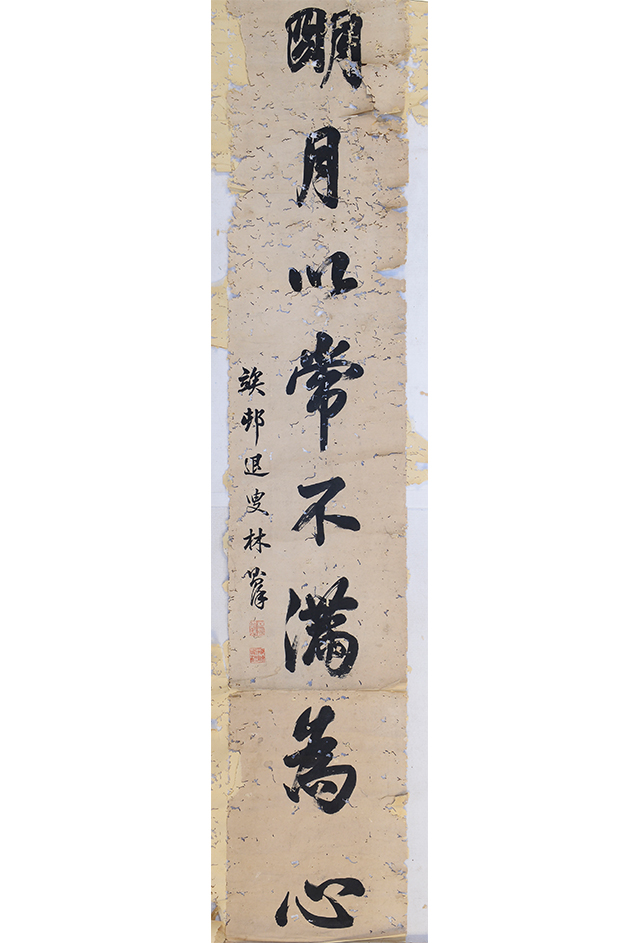 明月以常不滿為心
竢邨退叟林則徐